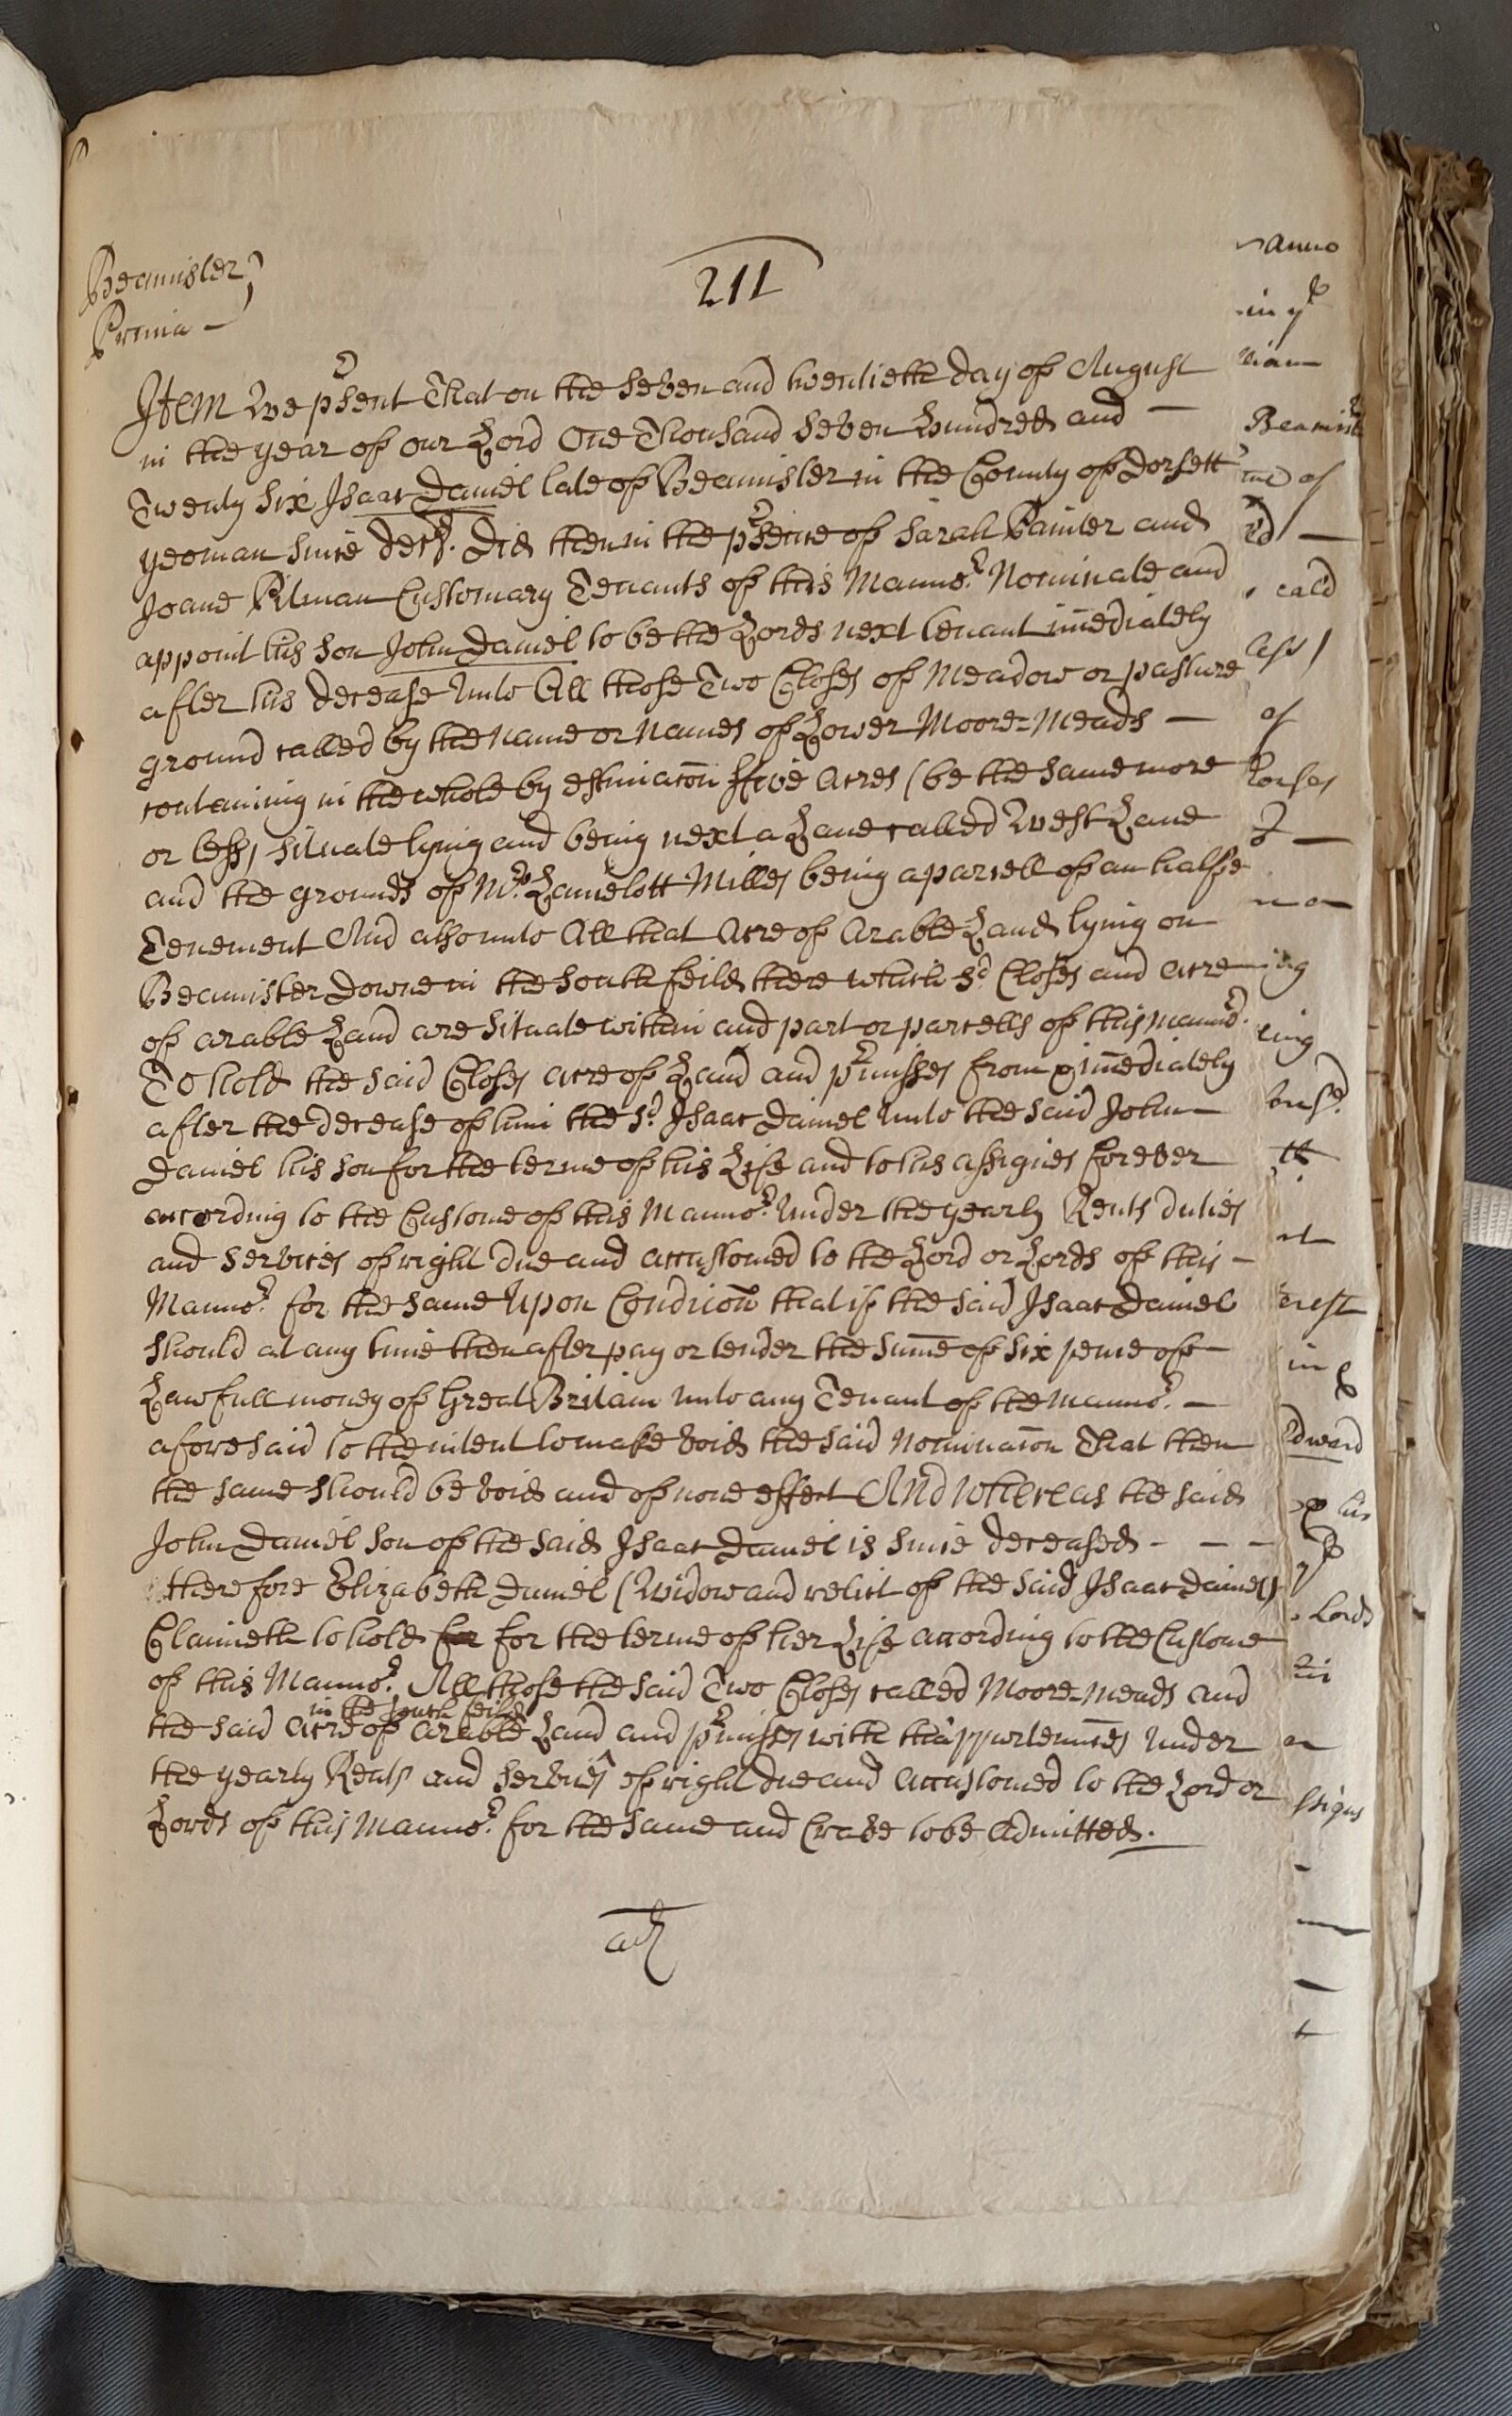 Beamister
Prima -
211
Item Wee p'sent That on the Seven and twentieth day of August
in the year of our Lord One Thousand Seven Hundred and —
Twenty Six Isaac Daniel late of Beamister in the County of Dorsett
yeoman since dec'd. Did then in the p'sence of Sarah Painter and
Joane Pitman Customary Tenants of this Manno.r Nominate and
appoint his Son John Daniel to be the Lords next tenant im̄ediately
after his decease Unto All those Two Closes of Meadow or pasture
ground called by the name or names of Lower Moore=Meads —
containing in the whole by estimac̄on ffive Acres (be the same more
or less) Situate lying and being next a Lane called West Lane
and the grounds of Mr. Lancelott Milles being a parcell of an halfe
Tenement And also unto All that Acre of Arable Land lying on
Beamister Downe in the South feild there which sd. Closes and Acre
of arable Land are Situate within and part or parcells of this Manno.r
To hold the said Closes acre of Land and p'misses from & im̄ediately
after the decease of him the sd. Isaac Daniel Unto the said John
Daniel his Son for the terme of his Life and to his assignes forever
according to the Custome of this Manno.r Under the yearly Rents duties
and Services of right due and accustomed to the Lord or Lords of this -
Manno.r for the same Upon Condic̄on that if the said Isaac Daniel
should at any time then after pay or tender the Sum̄e of Six pence of
Lawfull money of Great Britain unto any Tenant of the Manno.r -
aforesaid to the intent to make void the said Nominac̄on That then
the same should be void and of none effect And Whereas the said
John Daniel Son of the said Isaac Daniel is since deceased - - -
therefore Elizabeth Daniel (Widow and relict of the said Isaac Daniel)
Claimeth to hold for for the terme of her Life according to the Custome
of this Manno.r All those the said Two Closes called Moore-Meads And
in the South feild
the said Acre of Arable Land and p'misses with th'appurtenn̄ces Under
the yearly Rents and Services of right due and Accustomed to the Lord or
Lords of this Manno.r for the same and Crave to be Admitted.
ad
anno
in ye
Beamist
of
eald
less)
of
ing
in &
Edward
his
ye
Lords